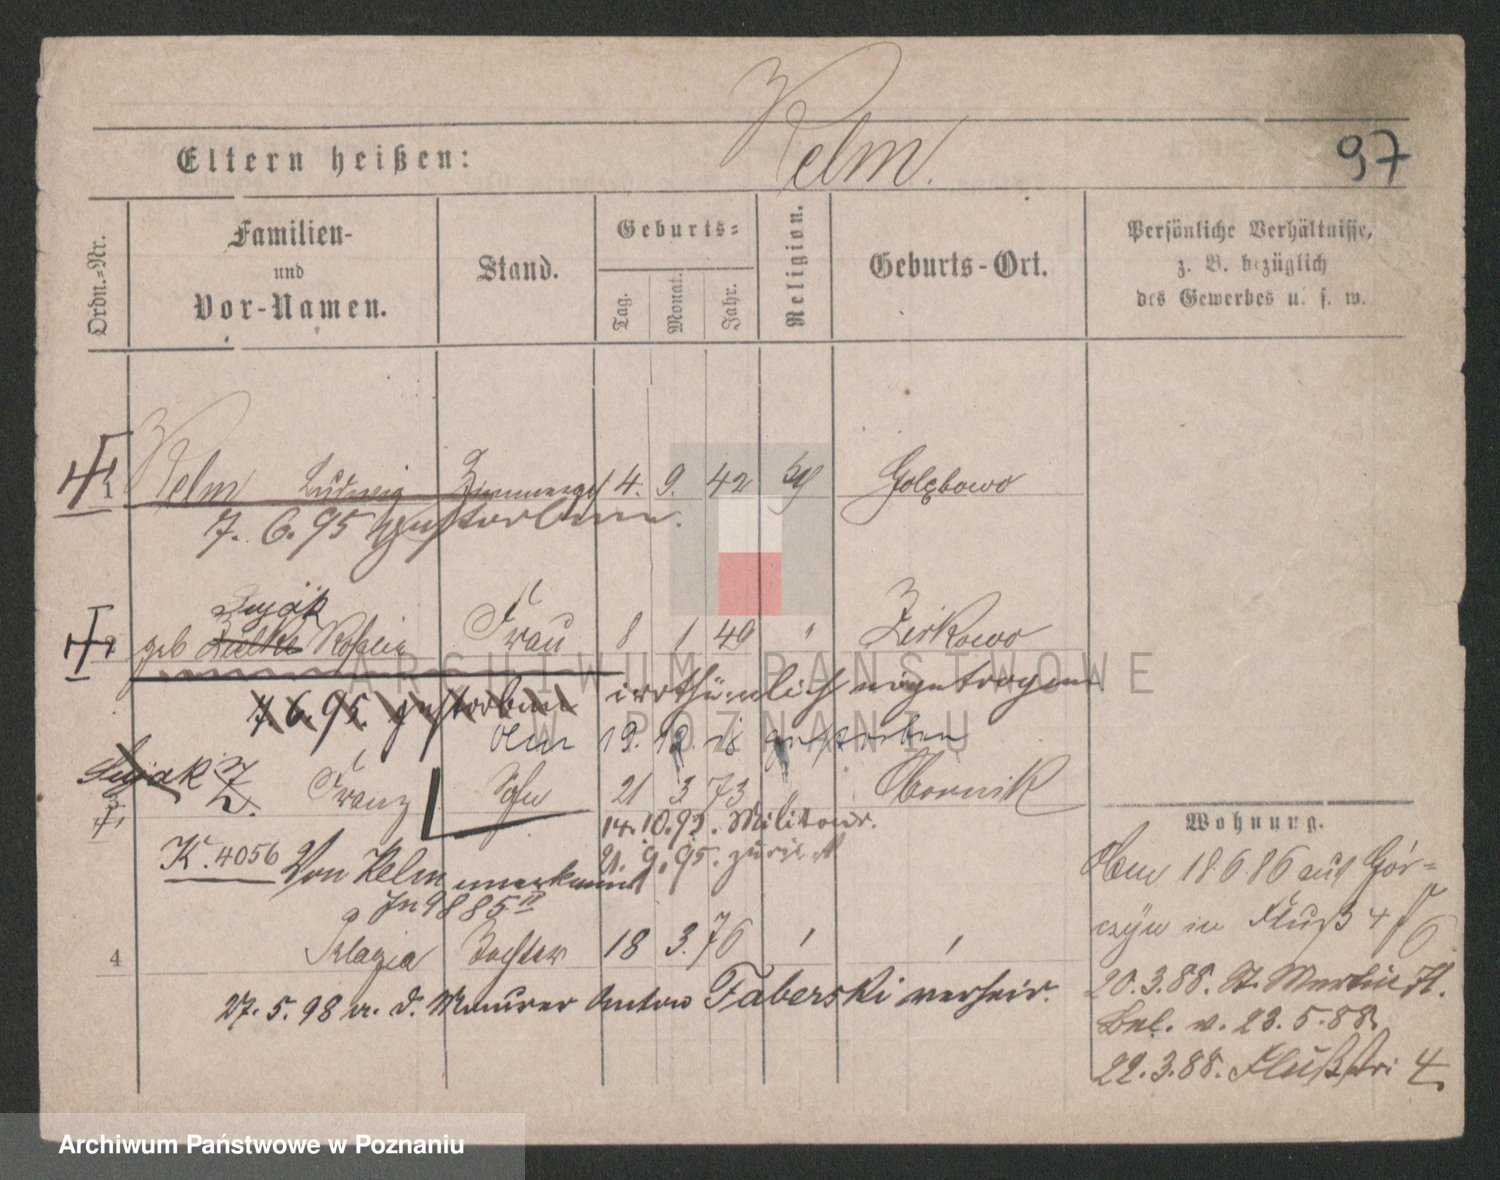 Kelm.
97
Eltern heißen:
Ordn.-Nr.
Familien-
und
Vor-Namen.
Stand.
Geburts-
Tag.
Monat.
Jahr.
Religion.
Geburts-Ort.
Persönliche Verhältnisse,
z. B. bezüglich
des Gewerbes u. s. w.
1 Kelm Ludwig Zimmerges 14. 9. 42 Golębowo
7. 6. 95 gestorben.
Dujak
2 geb Rosalie Frau 8 1 49 " Zirkowo
7 6. 95. gestorben irrthümlich eingetragen
19. 12. gestorben
Dujak
3 Franz Sohn 21 3 73 " Obornik
14. 10. 93. Militair.
21. 9. 95. zurück
K. 4056 Von Kelm anerkannt
Jn 9885 II
4 Pelagia Tochter 18 3. 76 " "
27. 5. 98 m. d. Maurer Anton Faberski verheir.
Wohnung.
18 6 86 aus Gór-
czyn in Fluß 4
20. 3. 88. St. Martin 71.
Bel. v. 23. 5. 88.
22. 3. 88. Flußstr 4
ARCHIWUM PAŃSTWOWE
W POZNANIU
Archiwum Państwowe w Poznaniu